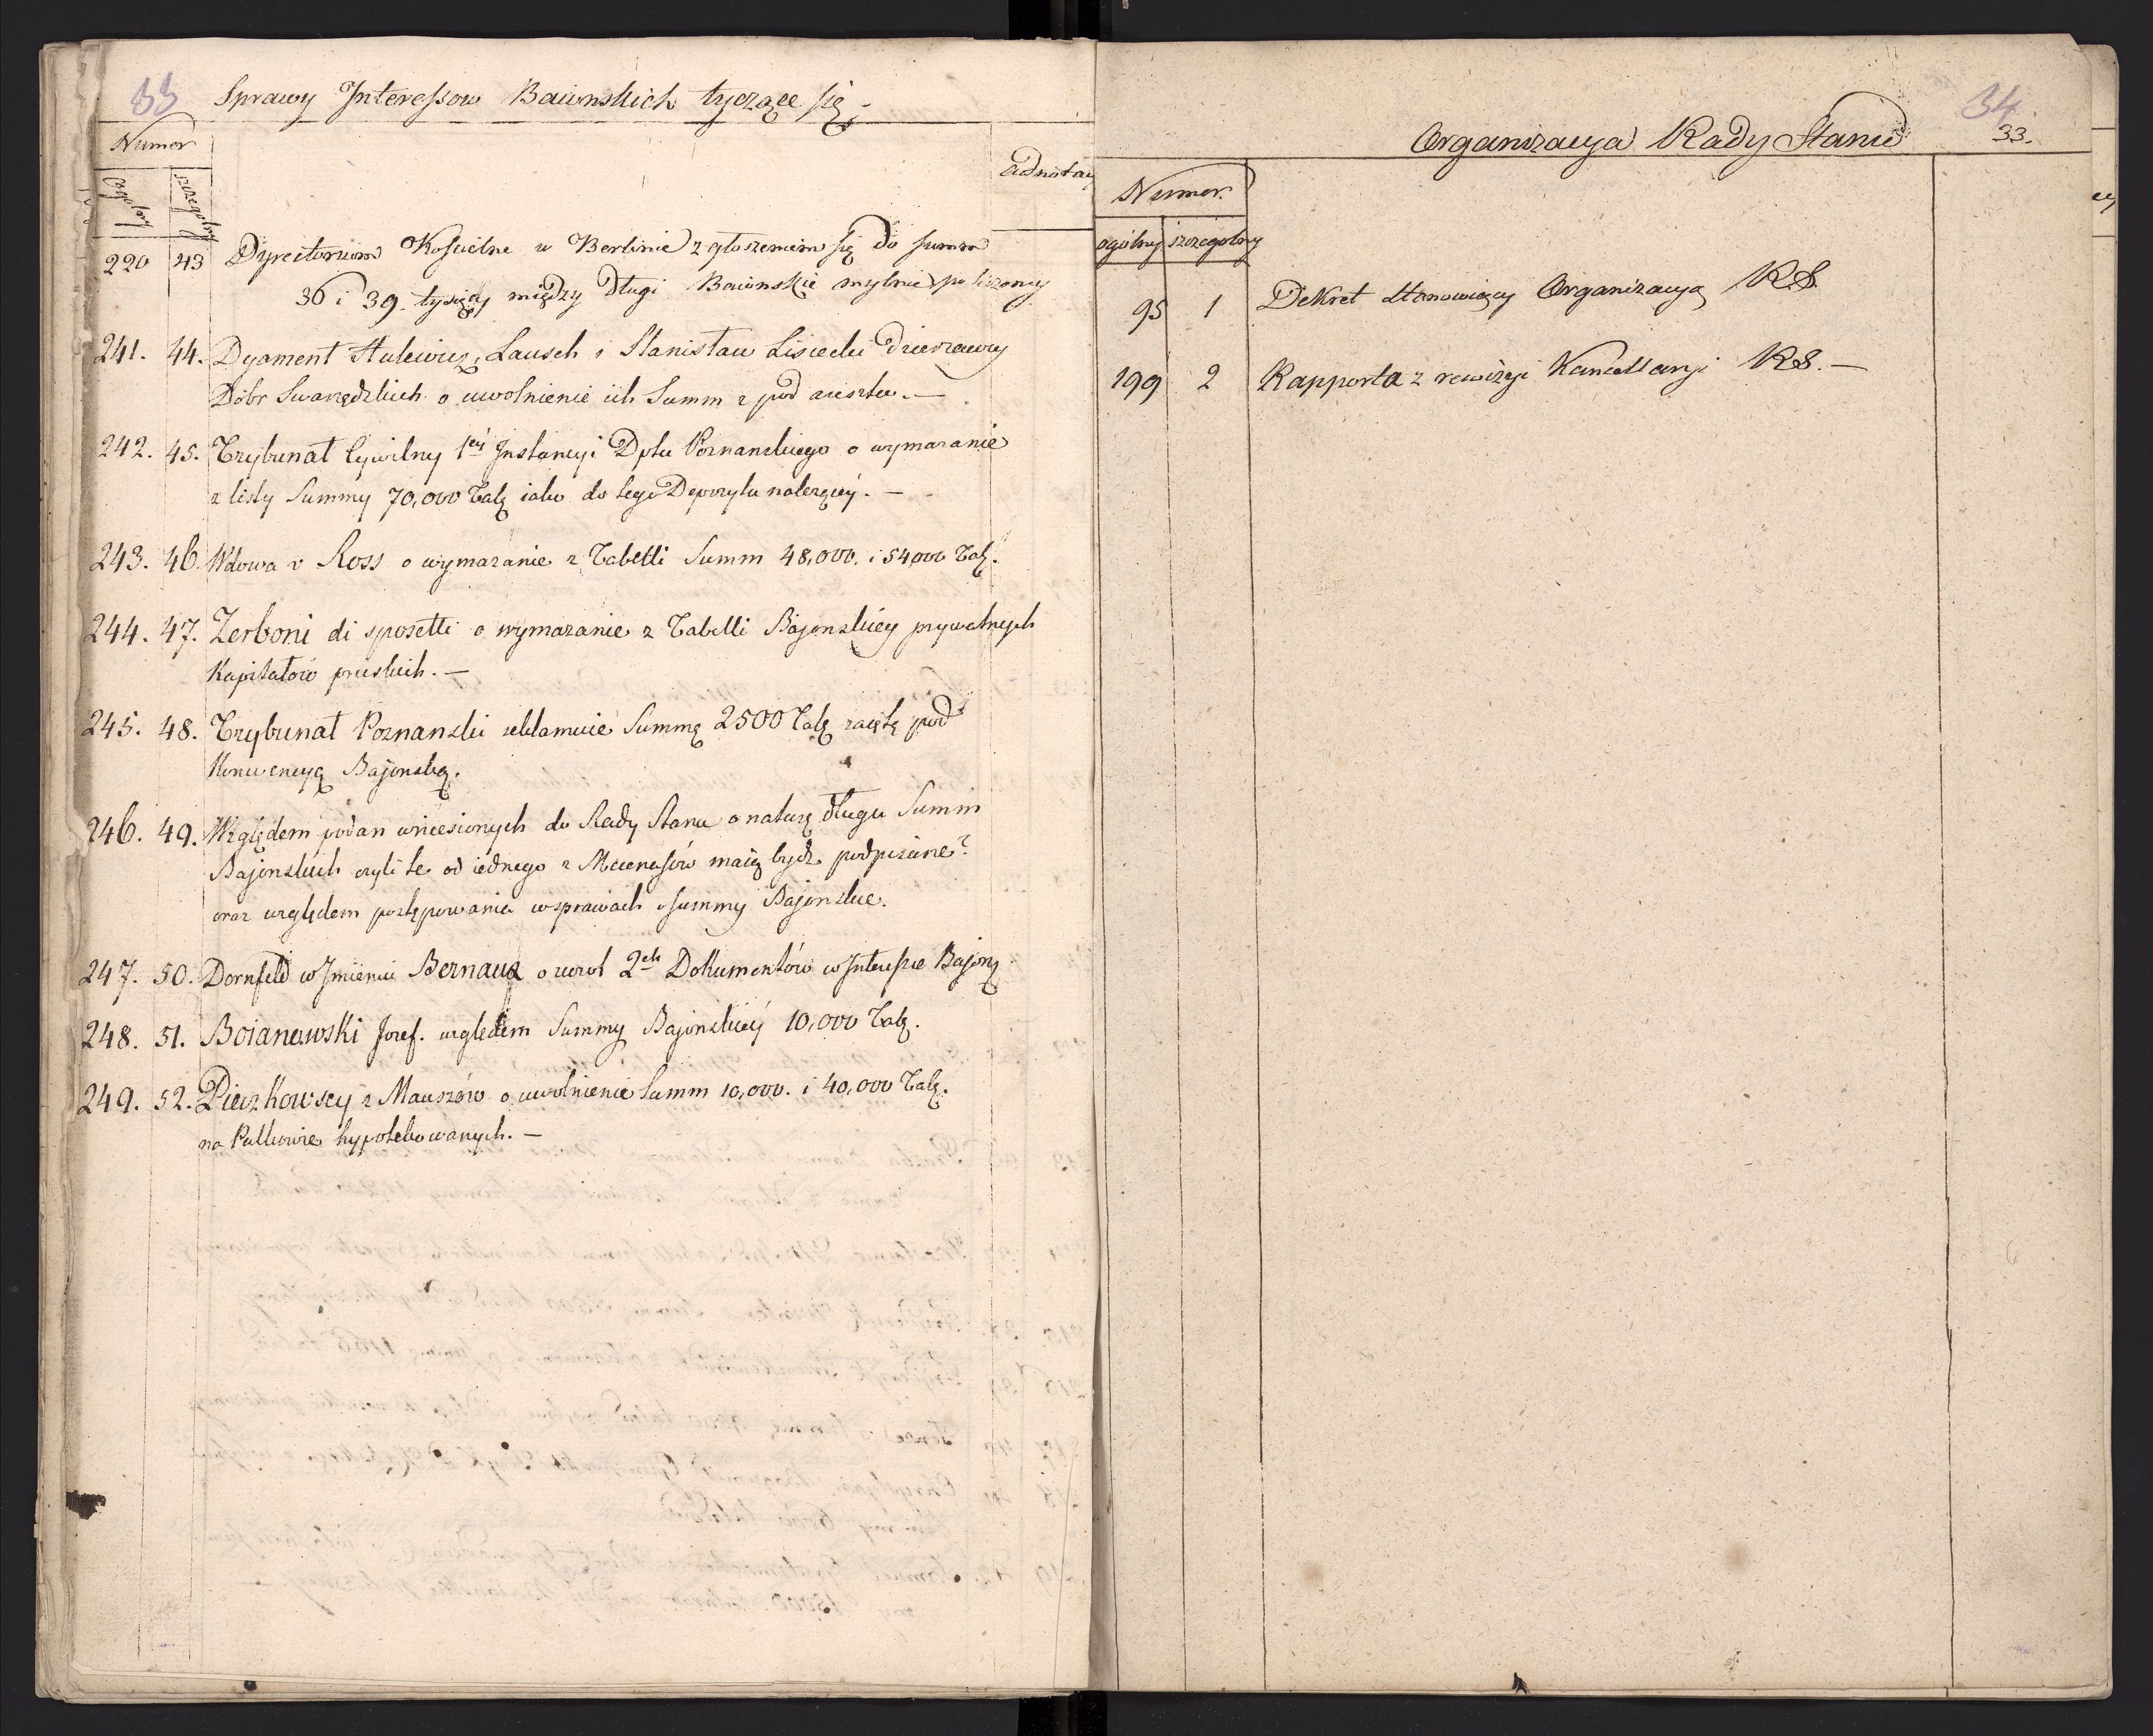 33
Sprawy Interessow Baionskich tyczące się
Numor
Ogolny
szczegolny
Adnotacy
220 43 Dyrectorium Koscielne w Berlinie z głoszeniem się do summ
36 i 39. tysięcy między Długi Baionskie mylnie policzony
241. 44. Dyament Stulewicz, Lausch i Stanisław Lisiecki Dzierzawcy
Dóbr Swarzędzkich o uwolnienie ich Summ z pod aresztu. —
242. 45. Trybunał Cywilny 1ey Instancyi Dptu Poznanskiego o wymazanie
z listy Summy 70,000 Talą iako do tego Depozytu należący. —
243. 46. Wdowa v Ross o wymazanie z Tabelli Summ 48,000. i 54,000 Talą.
244. 47. Zerboni di sposetti o wymazanie z Tabelli Bajonskiéy prywatnych
Kapitałow pruskich. —
245. 48. Trybunał Poznanski reklamuie Summę 2500 Talą zaiętą pod
Konwencyą Bajonską.
246. 49. Względem podan wniesionych do Rady Stanu o naturę długu Summ
Bajonskich czyli te od iednego z Mecenasów maią bydź podpisane?
oraz względem postępowania w sprawach o summy Bajonskie.
247. 50. Dornfeld w Imieniu Bernaua o zwrot 2ch Dokumentów w Interesie Bajoną
248. 51. Boianowski Josef. względem Summy Bajonskiéy 10,000 Talą.
249. 52. Pieszkowscy z Mauszów o uwolnienie Summ 10,000. i 40,000 Talą.
na Pulkowie hypotekowanych. —
34
33.
Organizacya Rady Stanu
Numor.
ogólny szczegolny
95 1 Dekret stanowiący Organizacyą RS.
199 2 Rapporta z rewizyi Kancellaryi RS. —